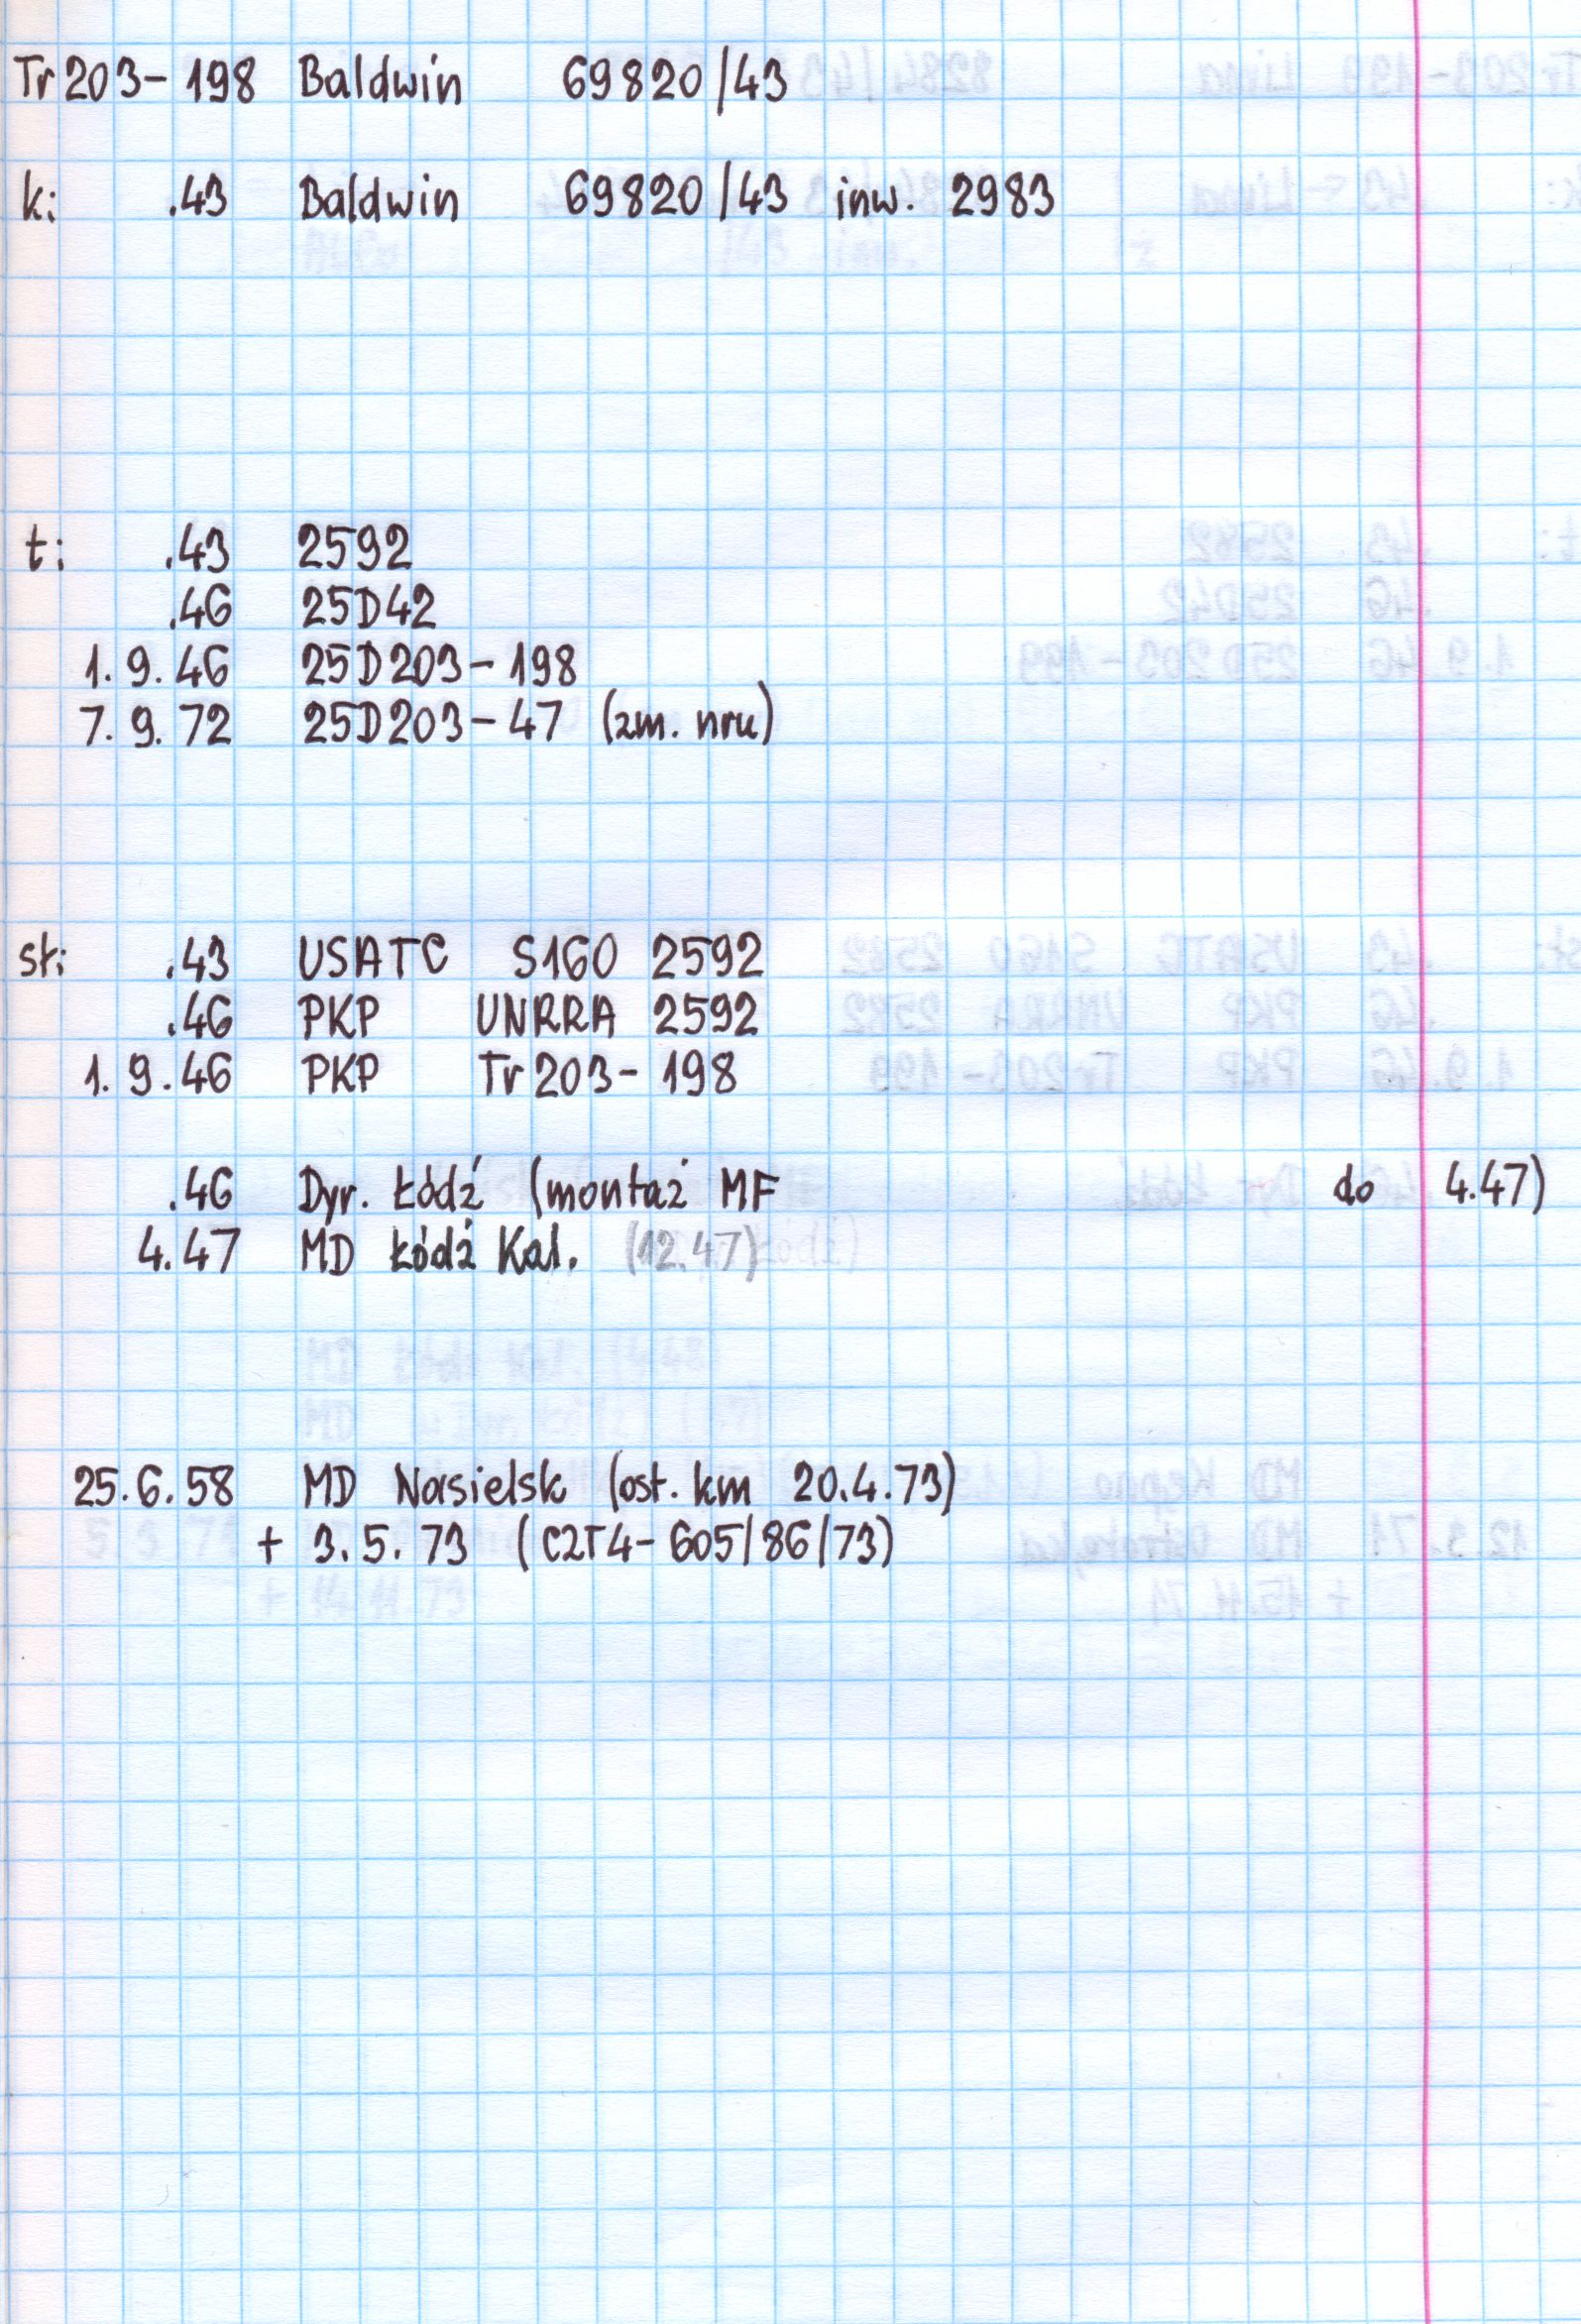 Tr 203-198 Baldwin 69820/43
k: .43 Baldwin 69820/43 inw. 2983
t: .43 2592
.46 25D42
1.9.46 25D203-198
7.9.72 25D203-47 (zm. nru)
st: .43 USATC S160 2592
.46 PKP UNRRA 2592
1.9.46 PKP Tr 203-198
.46 Dyr. Łódź (montaż MF do 4.47)
4.47 MD Łódź Kal. (12.47)
25.6.58 MD Nasielsk (ost. km 20.4.73)
+ 3.5.73 (C2T4-605/86/73)